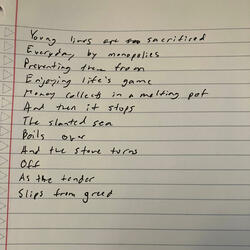 Young lives are sacrificed
Everyday by monopolies
Preventing them from
Enjoying life's game
Money collects in a melding pot
And then it stops
The slanted sea
Boils over
And the stove turns
Off
As the tender
Slips from greed